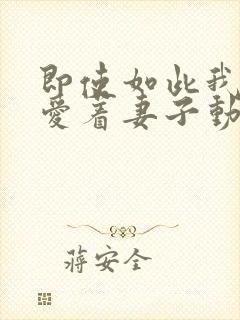 即使如此我
爱着妻子動
蒋安全